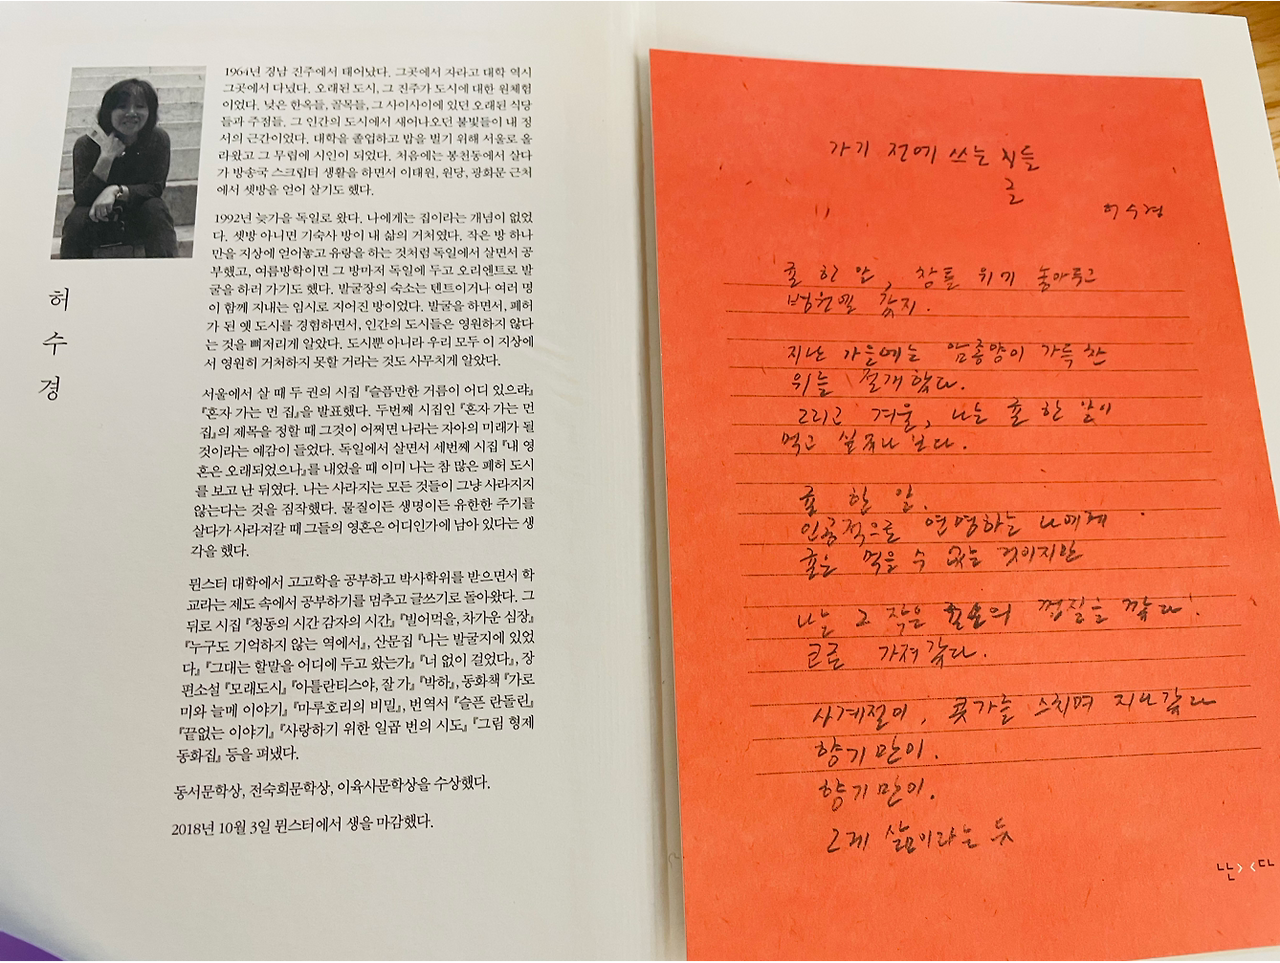 허
수
경
1964년 경남 진주에서 태어났다. 그곳에서 자라고 대학 역시
그곳에서 다녔다. 오래된 도시, 그 진주가 도시에 대한 원체험
이었다. 낮은 한옥들, 골목들, 그 사이사이에 있던 오래된 식당
들과 주점들. 그 인간의 도시에서 새어나오던 불빛들이 내 정
서의 근간이었다. 대학을 졸업하고 밥을 벌기 위해 서울로 올
라왔고 그 무렵에 시인이 되었다. 처음에는 봉천동에서 살다
가 방송국 스크립터 생활을 하면서 이태원, 원당, 광화문 근처
에서 셋방을 얻어 살기도 했다.
1992년 늦가을 독일로 왔다. 나에게는 집이라는 개념이 없었
다. 셋방 아니면 기숙사 방이 내 삶의 거처였다. 작은 방 하나
만을 지상에 얻어놓고 유랑을 하는 것처럼 독일에서 살면서 공
부했고, 여름방학이면 그 방마저 독일에 두고 오리엔트로 발
굴을 하러 가기도 했다. 발굴장의 숙소는 텐트이거나 여러 명
이 함께 지내는 임시로 지어진 방이었다. 발굴을 하면서, 폐허
가 된 옛 도시를 경험하면서, 인간의 도시들은 영원하지 않다
는 것을 뼈저리게 알았다. 도시뿐 아니라 우리 모두 이 지상에
서 영원히 거처하지 못할 거라는 것도 사무치게 알았다.
서울에서 살 때 두 권의 시집 『슬픔만한 거름이 어디 있으랴』
『혼자 가는 먼 집』을 발표했다. 두번째 시집인 『혼자 가는 먼
집』의 제목을 정할 때 그것이 어쩌면 나라는 자아의 미래가 될
것이라는 예감이 들었다. 독일에서 살면서 세번째 시집 『내 영
혼은 오래되었으나』를 내었을 때 이미 나는 참 많은 폐허 도시
를 보고 난 뒤였다. 나는 사라지는 모든 것들이 그냥 사라지지
않는다는 것을 짐작했다. 물질이든 생명이든 유한한 주기를
살다가 사라져갈 때 그들의 영혼은 어디인가에 남아 있다는 생
각을 했다.
뮌스터 대학에서 고고학을 공부하고 박사학위를 받으면서 학
교라는 제도 속에서 공부하기를 멈추고 글쓰기로 돌아왔다. 그
뒤로 시집 『청동의 시간 감자의 시간』 『빌어먹을, 차가운 심장』
『누구도 기억하지 않는 역에서』, 산문집 『나는 발굴지에 있었
다』 『그대는 할말을 어디에 두고 왔는가』 『너 없이 걸었다』, 장
편소설 『모래도시』 『아틀란티스야, 잘 가』 『박하』, 동화책 『가로
미와 늘메 이야기』 『마루호리의 비밀』, 번역서 『슬픈 란돌린』
『끝없는 이야기』 『사랑하기 위한 일곱 번의 시도』 『그림 형제
동화집』 등을 펴냈다.
동서문학상, 전숙희문학상, 이육사문학상을 수상했다.
2018년 10월 3일 뮌스터에서 생을 마감했다.
가기 전에 쓰는 시들
글
허수경
귤 한 알, 식탁 위에 놓아두고
병원엘 갔지.
지난 가을에는 암종양이 가득 찬
위를 절개했다.
그리고 겨울, 나는 귤 한 알이
먹고 싶구나 보다.
귤 한 알.
인공적으로 연명하는 나에게
귤은 먹을 수 없는 것이지만
나는 그 작은 귤의 껍질을 깠다.
코를 가져갔다.
사계절이, 콧가를 스치며 지나갔다
향기만이.
향기만이.
그게 삶이라는 듯
난다